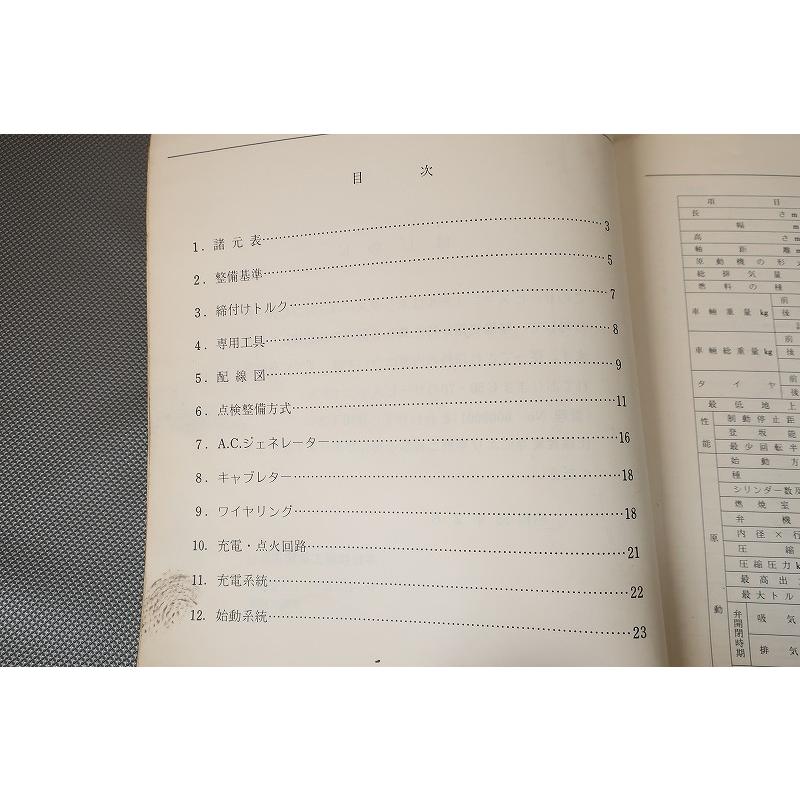 目 次
1. 諸元表 3
2. 整備基準 5
3. 締付けトルク 7
4. 専用工具 8
5. 配線図 9
6. 点検整備方式 11
7. A.C.ジェネレーター 16
8. キャブレター 18
9. ワイヤリング 18
10. 充電・点火回路 21
11. 充電系統 22
12. 始動系統 23
項 目
長 さm
幅 m
高 さm
軸 距 離m
原動機の形
総排気量
燃料の種
車輛重量kg 前
後
車輛総重量kg 前
後
タイヤ 前
後
最低地上
性能 制動停止距
登坂能
最少回転半
原動
始動方
種
シリンダー数及
燃焼室
弁機
内径×行
圧縮
圧縮圧力k
最高出
最大トル
弁開閉時期 吸気
排気